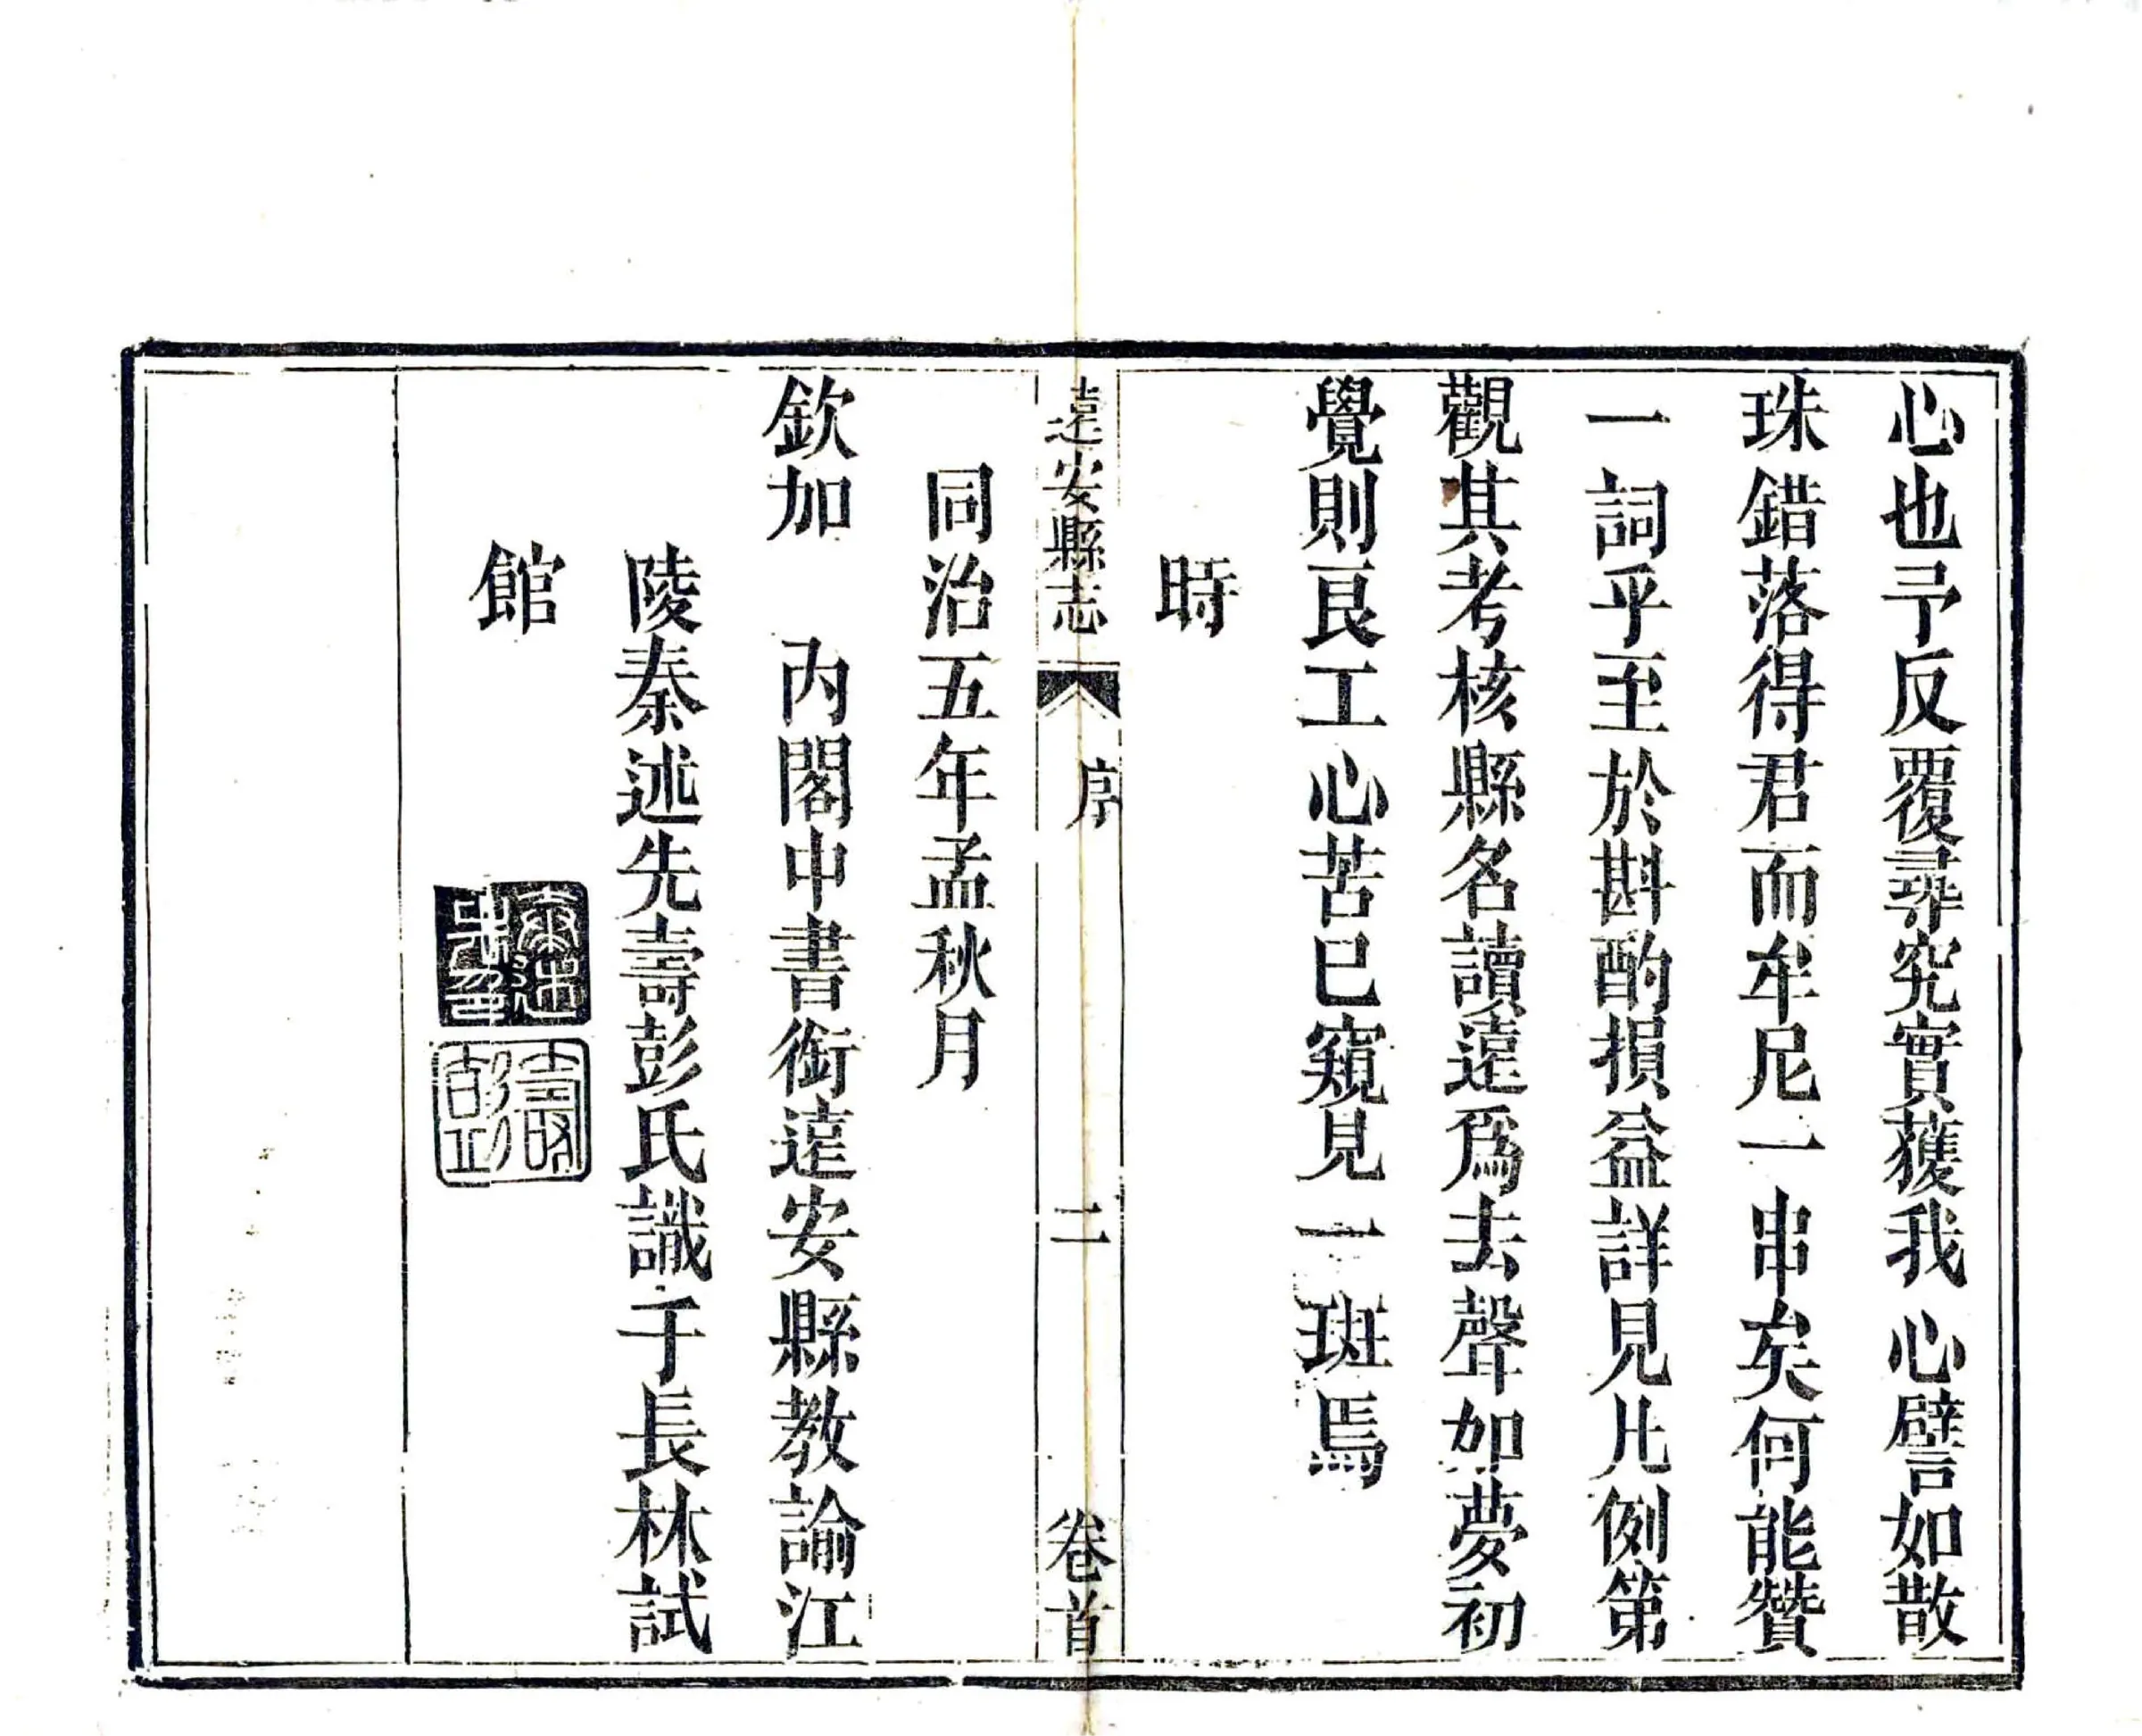 心也予反覆尋究實獲我心譬如散
珠錯落得君而牟尼一串矣何能贊
一詞乎至於斟酌損益詳見凡例第
觀其考核縣名讀遠爲去聲如夢初
覺則良工心苦已窺見一斑焉
時
遠安縣志 序 二 卷首
同治五年孟秋月
欽加 內閣中書銜遠安縣教諭江
陵秦述先壽彭氏識于長林試
館
秦述先印
壽彭